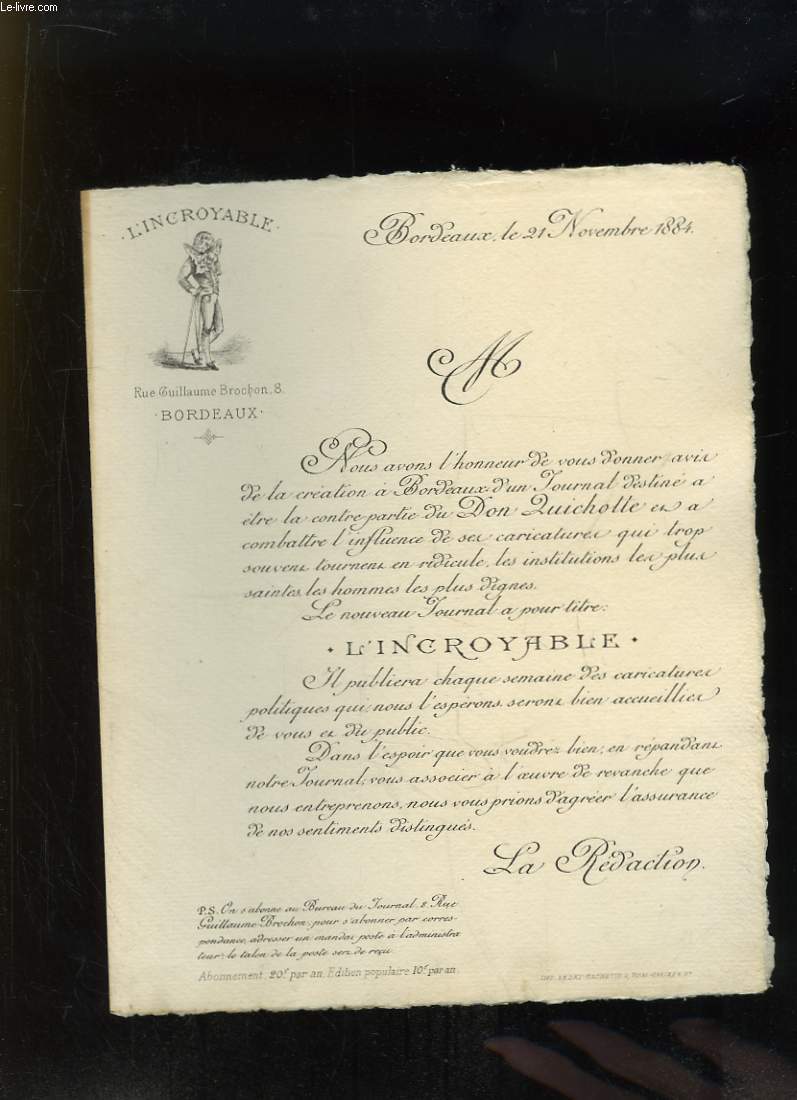 Le-livre.com
· L'INCROYABLE ·
Rue Guillaume Brochon, 8.
· BORDEAUX ·
Bordeaux, le 21 Novembre 1884.
M
Nous avons l'honneur de vous donner avis
de la création à Bordeaux, d'un Journal destiné a
être la contre partie du Don Quichotte et a
combattre l'influence de ses caricatures qui trop
souvent tournent en ridicule, les institutions les plus
saintes, les hommes les plus dignes.
Le nouveau Journal a pour titre:
· L'INCROYABLE ·
Il publiera chaque semaine des caricatures
politiques qui, nous l'espérons, seront bien accueillies
de vous et du public.
Dans l'espoir que vous voudrez bien, en répandant
notre Journal, vous associer à l'œuvre de revanche que
nous entreprenons, nous vous prions d'agréer l'assurance
de nos sentiments distingués.
La Rédaction.
P.S. On s'abonne au Bureau du Journal, 8, Rue
Guillaume Brochon; pour s'abonner par corres-
pondance, adresser un mandat poste à l'administra
teur: le talon de la poste sert de reçu.
Abonnement, 20f par an, Edition populaire 10f par an.
IMP.